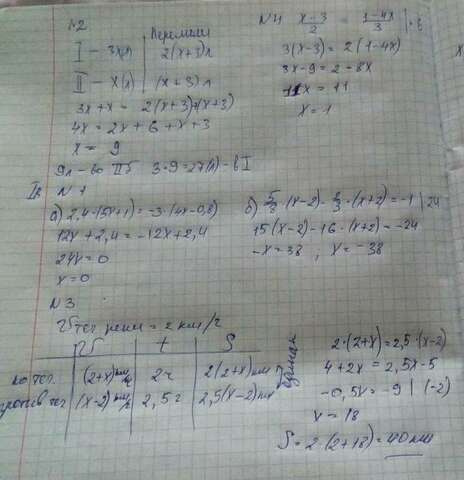 N2
I – 3x(л) | 2(x+3)л
II – x(л) | (x+3)л
3x+x = 2(x+3)+(x+3)
4x = 2x+6+x+3
x = 9
9л – во II б 3·9=27(л) – в I
N4 x-3/2 = 1-4x/3 |·6
3(x-3) = 2(1-4x)
3x-9 = 2-8x
11x = 11
x = 1
Iв N1
а) 2,4·(5x+1) = -3·(4x-0,8)
12x+2,4 = -12x+2,4
24x=0
x=0
б) 5/8·(x-2) - 2/3·(x+2) = -1 | 24
15(x-2)-16·(x+2)=-24
-x=38; x=-38
N3
V теч реки = 2 км/ч
V | t | S
по теч. | (2+x)км/ч | 2ч | 2(2+x)км
против теч | (x-2)км/ч | 2,5ч | 2,5(x-2)км
2·(2+x)=2,5·(x-2)
4+2x = 2,5x-5
-0,5x = -9 | (-2)
x = 18
S = 2·(2+18) = 40 км